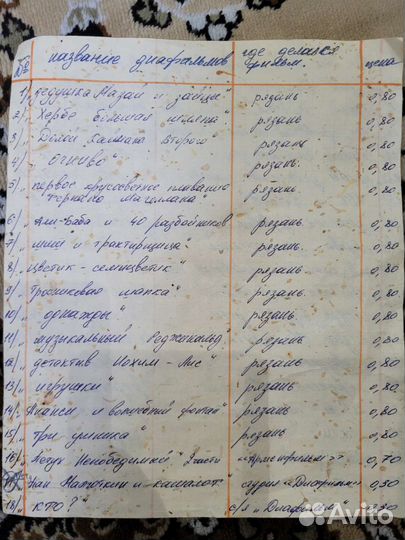 № название диафильмов где делался фильм. цена
1/ „Дедушка Мазай и зайцы" рязань 0,80
2/ „Хербе большая шляпа" рязань 0,80
3/ „Долой Калмана второго" рязань 0,80
4/ „Огниво" рязань. 0,80
5/ „первое кругосветное плавание рязань. 0,80
Магеллана"
6/ „Али-Баба и 40 разбойников рязань. 0,80
7/ „мыши и трактирщица" рязань. 0,80
8/ „Цветик-семицветик" рязань. 0,80
9/ „Тростниковая шапка" рязань. 0,80
10/ „однажды" рязань 0,80
11/ „музыкальный Реджинальд рязань 0,80
12/ „детектив Йохим-Лис" рязань 0,80
13/ „игрушки" рязань 0,80
14/ „Ананси и волшебный рязань 0,80
15/ „три умника" рязань 0,80
16/ „Петух Непобедимый" 2 части «Арменфильм» 0,70
17 „Нат Пинкертон и кашалот" студия „Диафильм" 0,30
18/ „кто?" с/я „Диафильм" 0,30
Avito